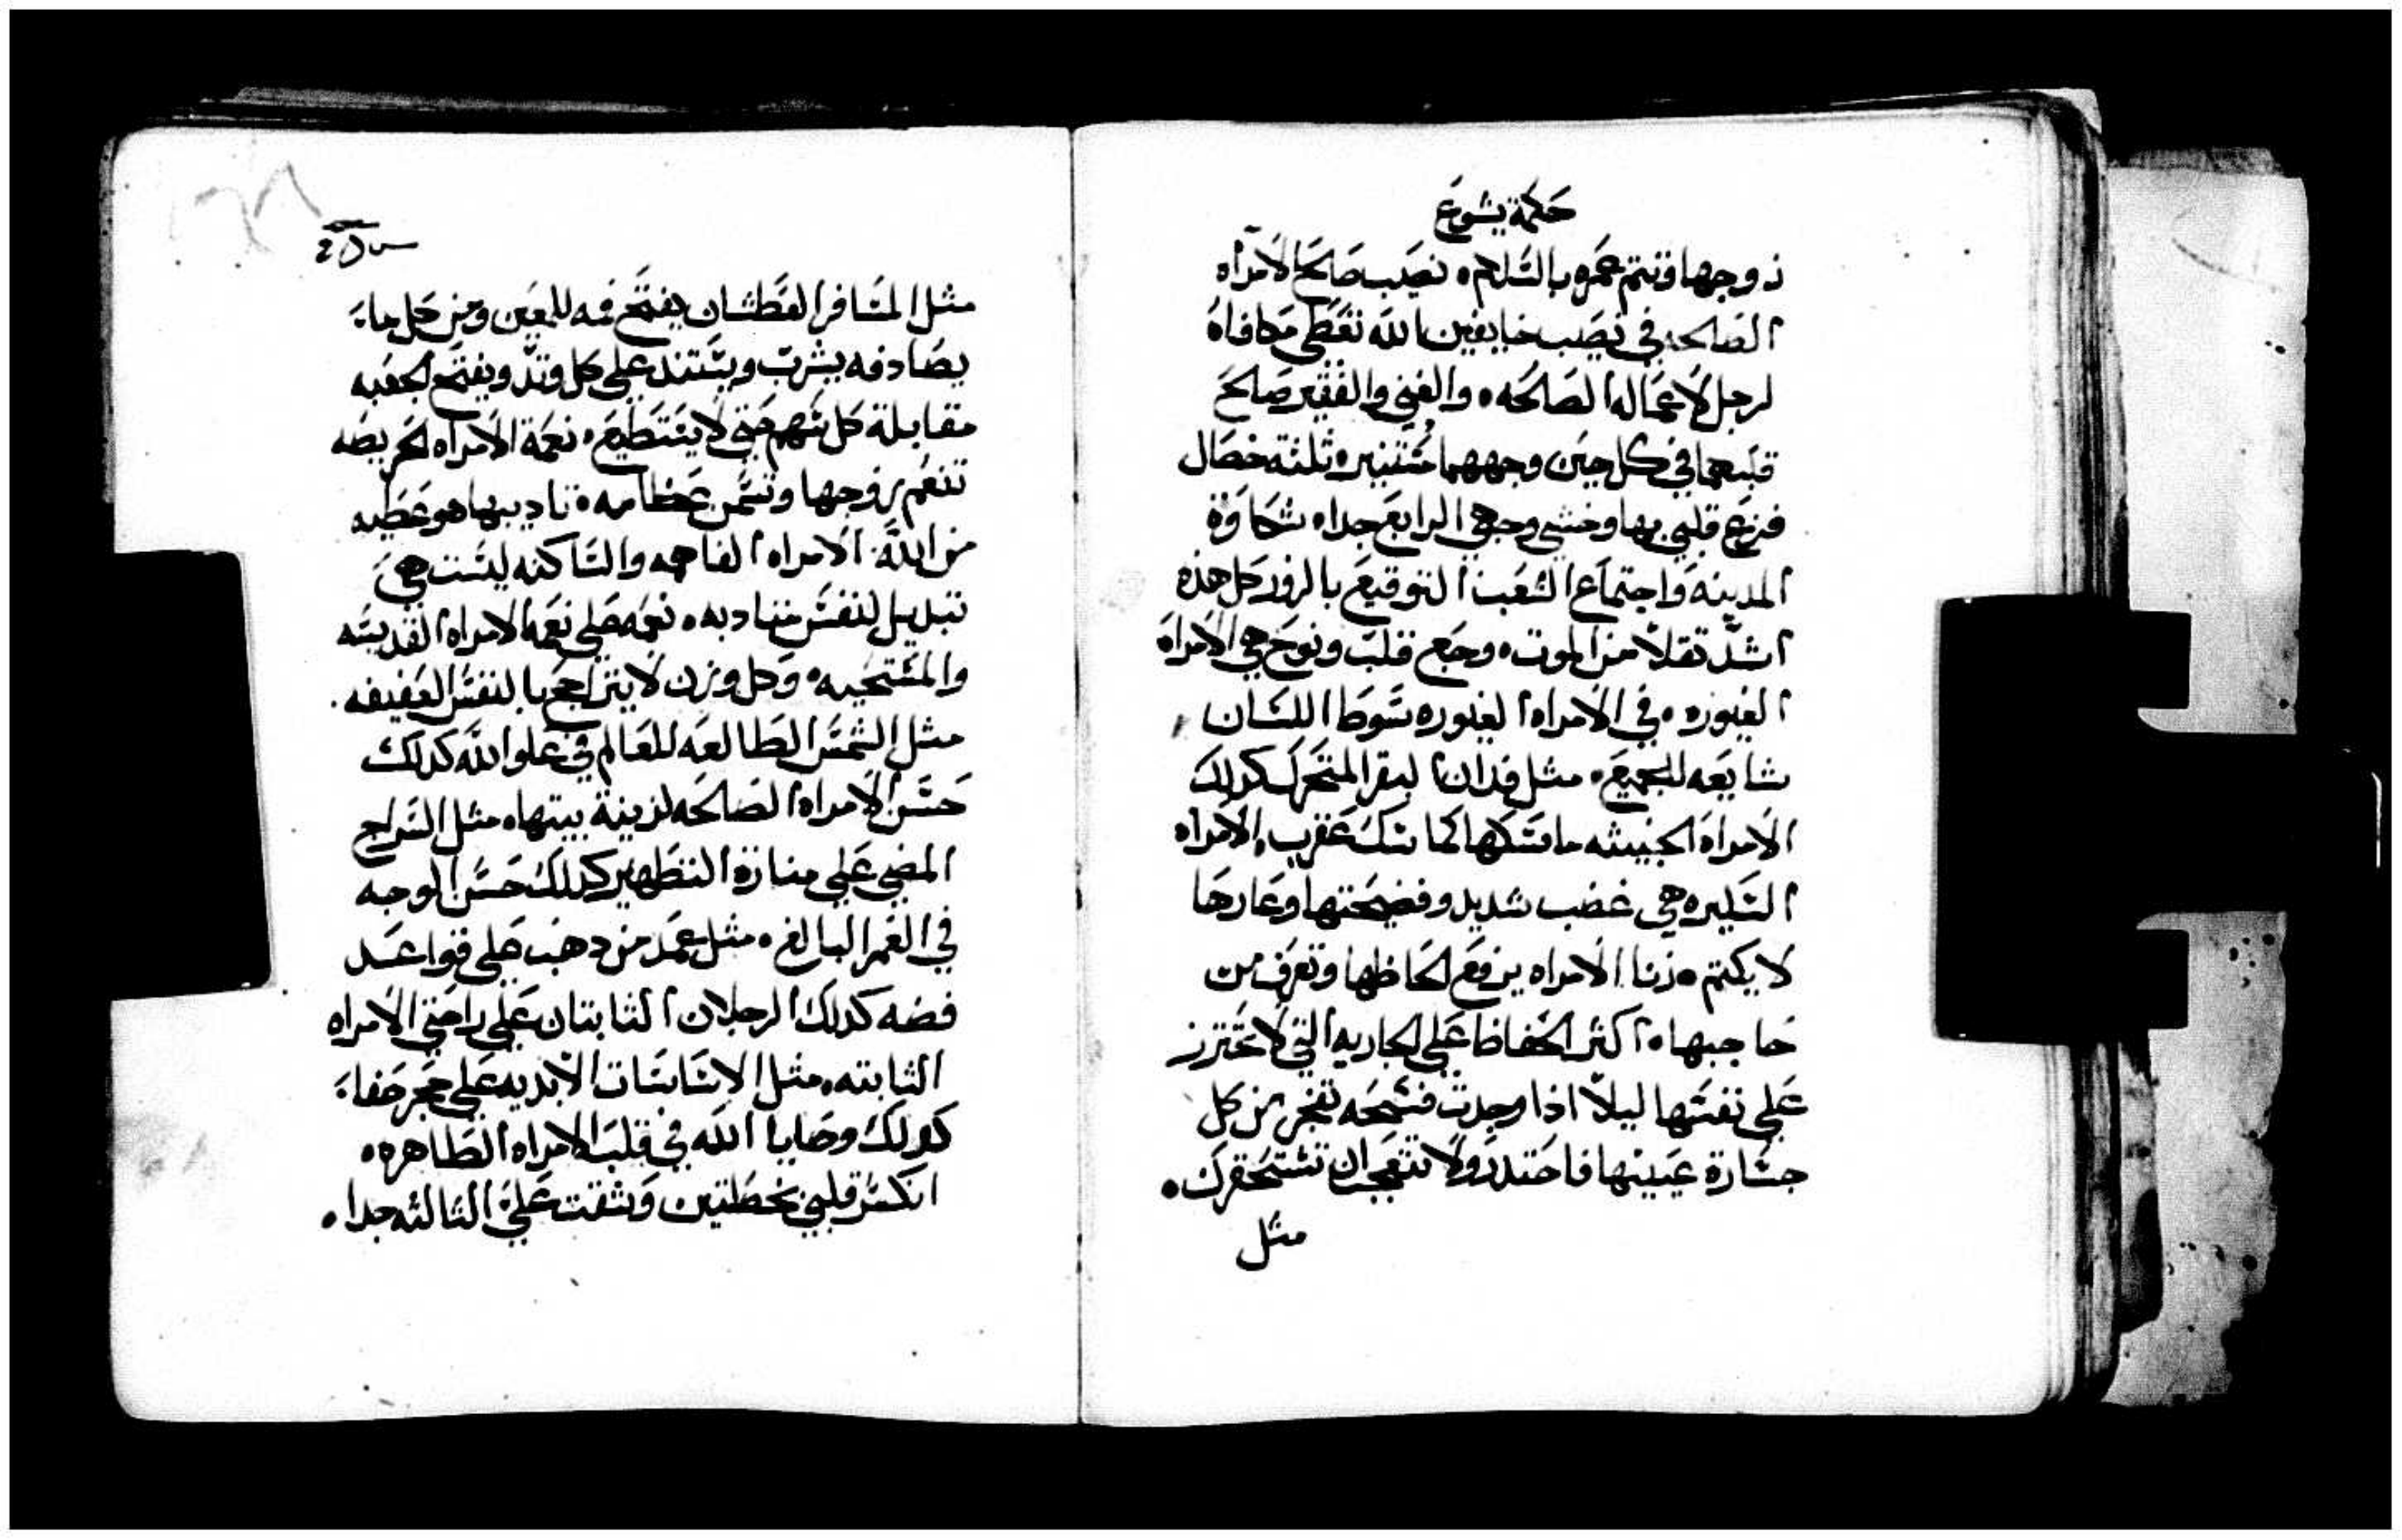 حكمة يشوع
زوجها وتتم عمره بالسلام. نصيب صالح الامراه
الصالحه في نصيب خايفين الله تعطى مكافاه
لرجل لاعماله الصالحه. والغني والفقير صالح
قلبهما في كل حين وجههما مستنير. ثلثه خصال
فزع قلبي بها وخشي وجهي الرابع جدا. شكاوة
المدينه واجتماع الشعب التوقيع بالزور كل هذه
اشد تقلا من الموت. وجع قلب ونوح هي الامراه
الغيوره. في الامراه الغيوره سوط اللسان
شايعه للجميع. مثل فدان البقر المتحرك كدلك
الامراه الخبيثه ماسكها كما سك عقرب. الامراه
السكيره هي غضب شديد وفضيحتها وعارها
لا يكتم. زنا الامراه يرفع لحاظها وتعرف من
حاجبها. اكثر الحفاظ على الجاريه التي لا تحترز
على نفسها ليلا اذا وجدت فسحه تفجر من كل
جسارة عينيها فاحتدر ولا تتعجب ان تستحقرك.
مثل
مثل المسافر العطشان يفتح فمه للعين ومن كل ماء
يصادفه يشرب ويستند على كل وتد ويفتح الجعبه
مقابلة كل سهم حتى لا يستطيع. نعمة الامراه الحريصه
تنعم زوجها وتسمن عظامه. تاديبها هو عطيه
من الله. الامراه الفاهمه والساكنه ليست هي
تبديل لنفس متادبه. نعمه على نعمه الامراه القديسه
والمستحيه. وكل وزن لا يتراجح بالنفس العفيفه.
مثل الشمس الطالعه للعالم في علو الله كدلك
حسن الامراه الصالحه لزينة بيتها. مثل السراج
المضي على منارة التطهير كدلك حسن الوجه
في العمر البالغ. مثل عمد من دهب على قواعد
فضه كدلك الرجلان الثابتان على راحتي الامراه
الثابته. مثل الاساسات الابديه على حجر صفاء
كدلك وصايا الله في قلب الامراه الطاهره.
انكسر قلبي بخصلتين وشقت على الثالثه جدا.